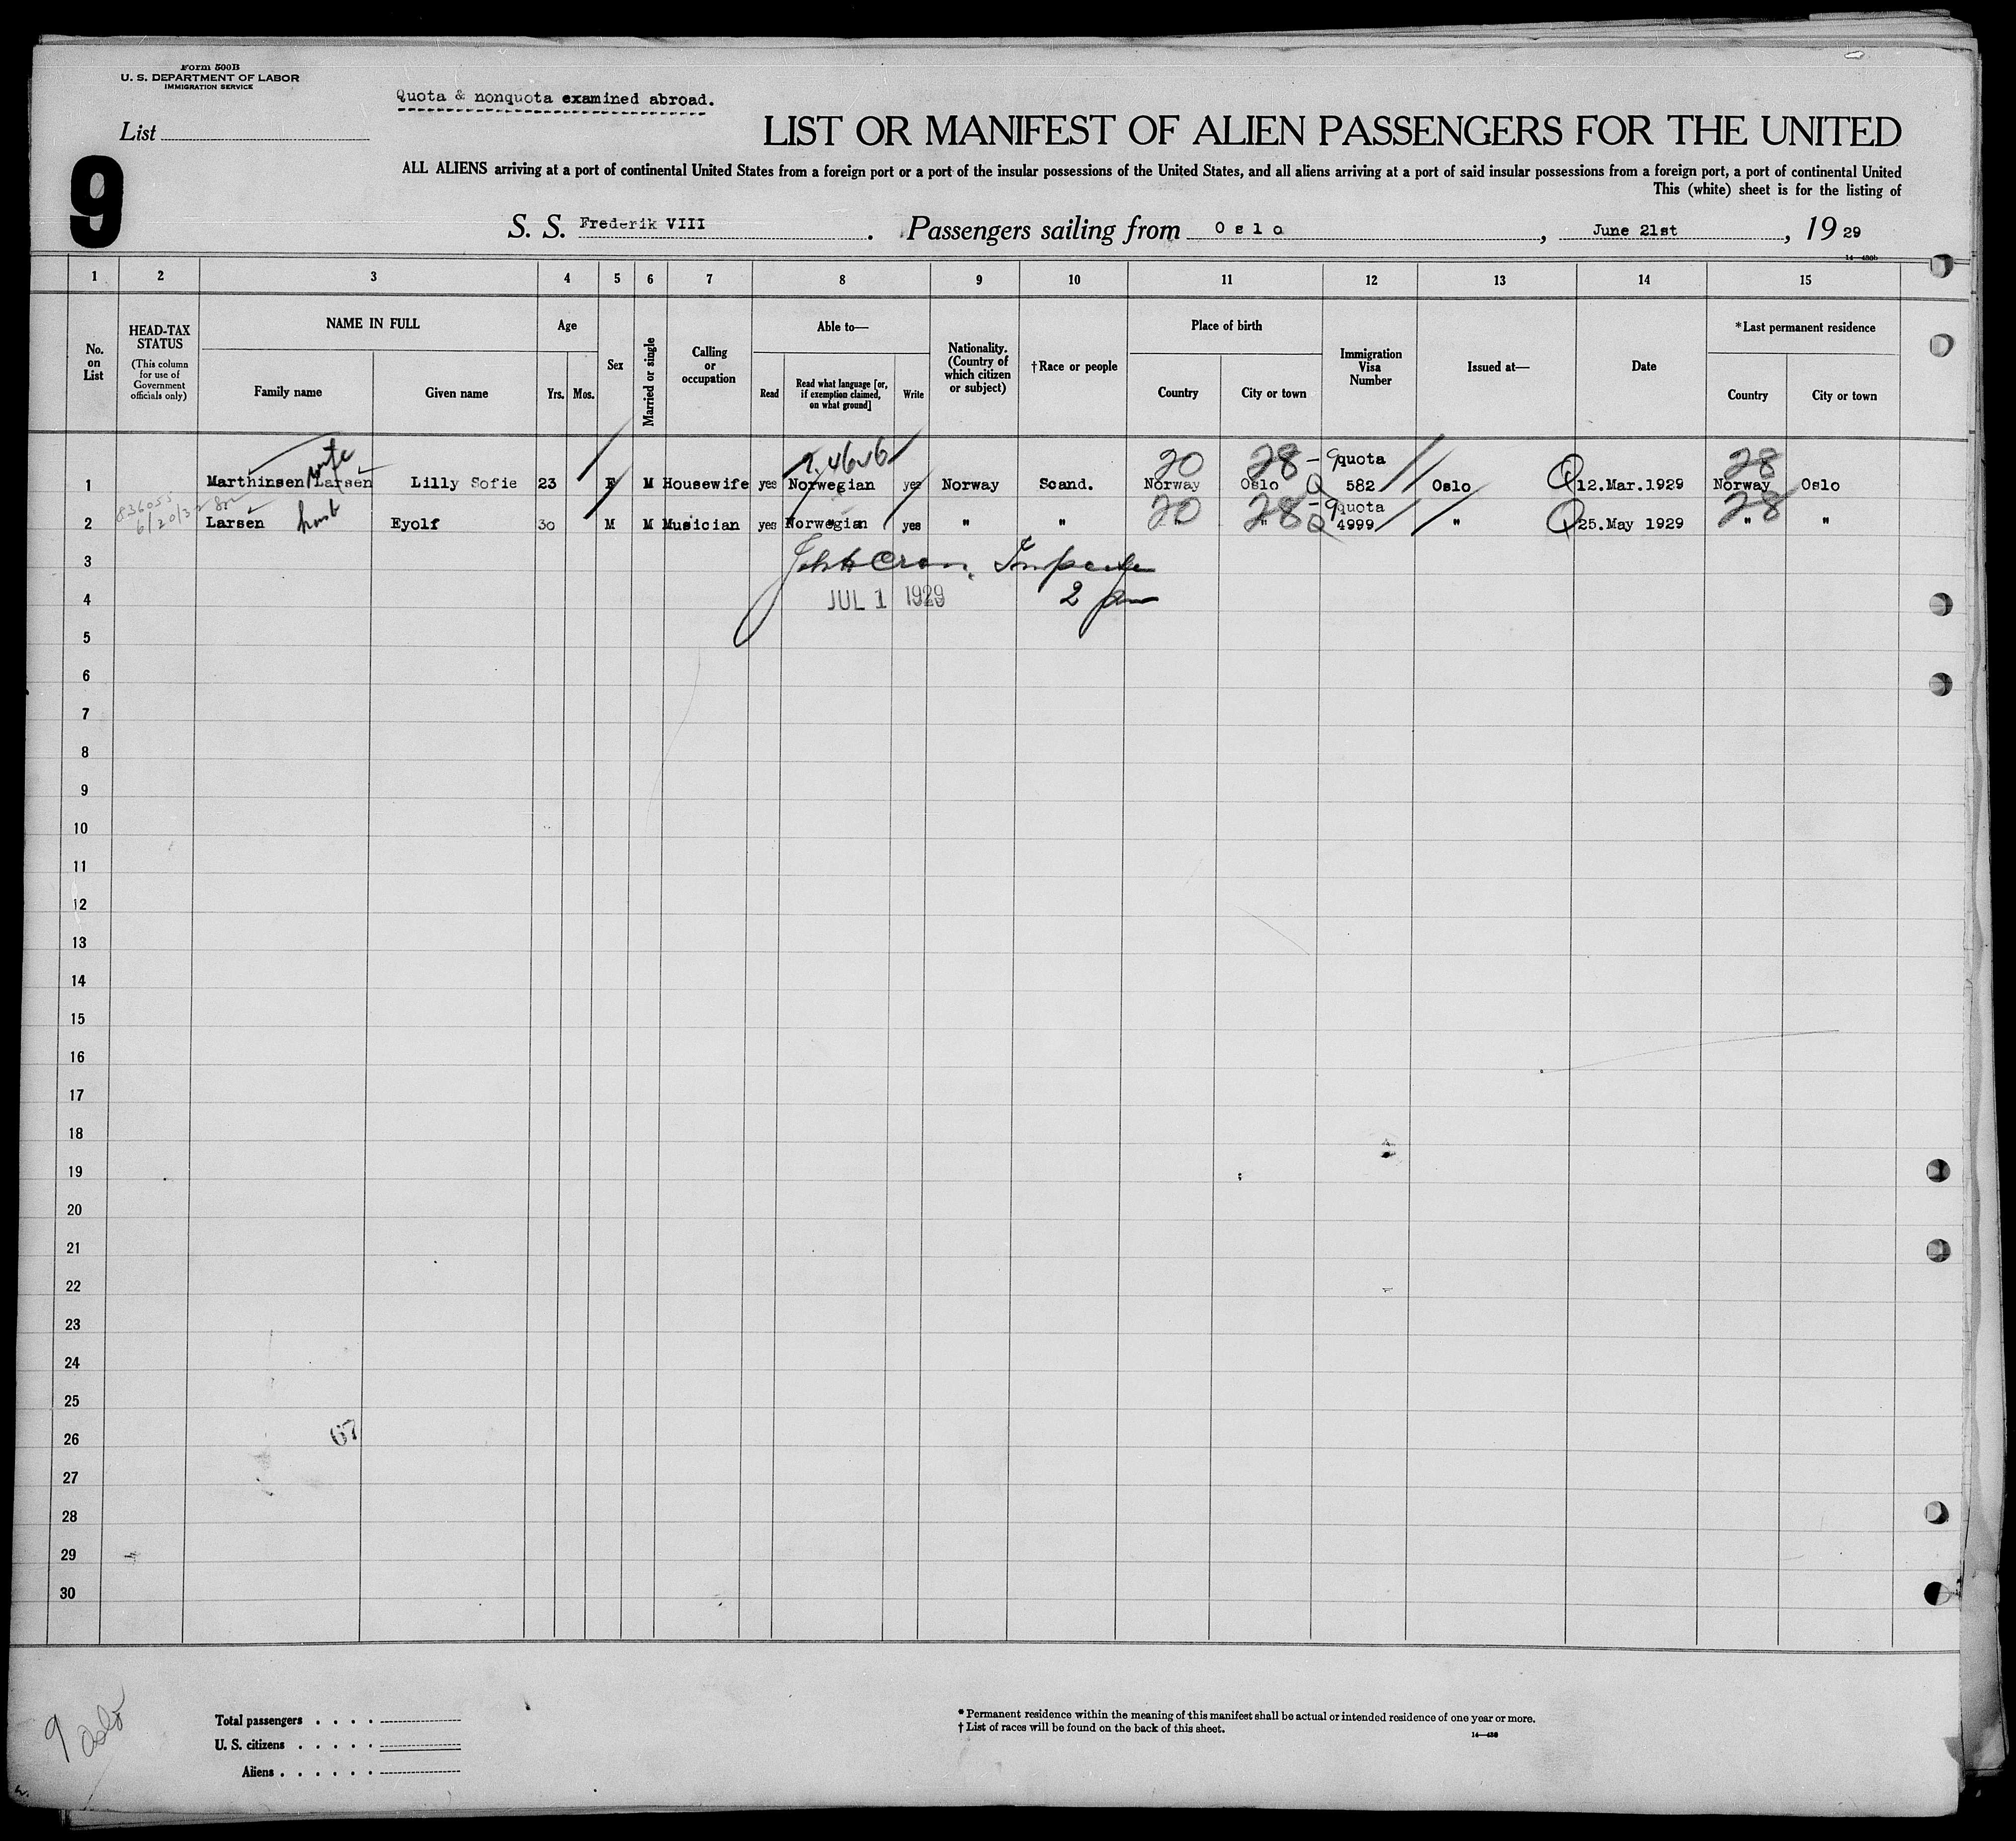 Form 500B
U. S. DEPARTMENT OF LABOR
IMMIGRATION SERVICE
Quota & nonquota examined abroad.
List
9
LIST OR MANIFEST OF ALIEN PASSENGERS FOR THE UNITED
ALL ALIENS arriving at a port of continental United States from a foreign port or a port of the insular possessions of the United States, and all aliens arriving at a port of said insular possessions from a foreign port, a port of continental United
This (white) sheet is for the listing of
S. S. Frederik VIII. Passengers sailing from Oslo, June 21st, 1929
1 2 3 4 5 6 7 8 9 10 11 12 13 14 15
No. on List
HEAD-TAX STATUS
(This column for use of Government officials only)
NAME IN FULL
Family name Given name
Age
Yrs. Mos.
Sex
Married or single
Calling or occupation
Able to—
Read
Read what language [or, if exemption claimed, on what ground]
Write
Nationality. (Country of which citizen or subject)
†Race or people
Place of birth
Country City or town
Immigration Visa Number
Issued at—
Date
*Last permanent residence
Country City or town
wife 20 28 - quota 28
1 Marthinsen Larsen Lilly Sofie 23 F M Housewife yes Norwegian yes Norway Scand. Norway Oslo Q 582 Oslo Q 12.Mar.1929 Norway Oslo
20 28 - quota 28
2 Larsen husb Eyolf 30 M M Musician yes Norwegian yes " " " " Q 4999 " Q 25.May 1929 " "
3
4 JUL 1 1929 2 pm
5
6
7
8
9
10
11
12
13
14
15
16
17
18
19
20
21
22
23
24
25
26 67
27
28
29
30
9 Oslo
Total passengers
U. S. citizens
Aliens
* Permanent residence within the meaning of this manifest shall be actual or intended residence of one year or more.
† List of races will be found on the back of this sheet.